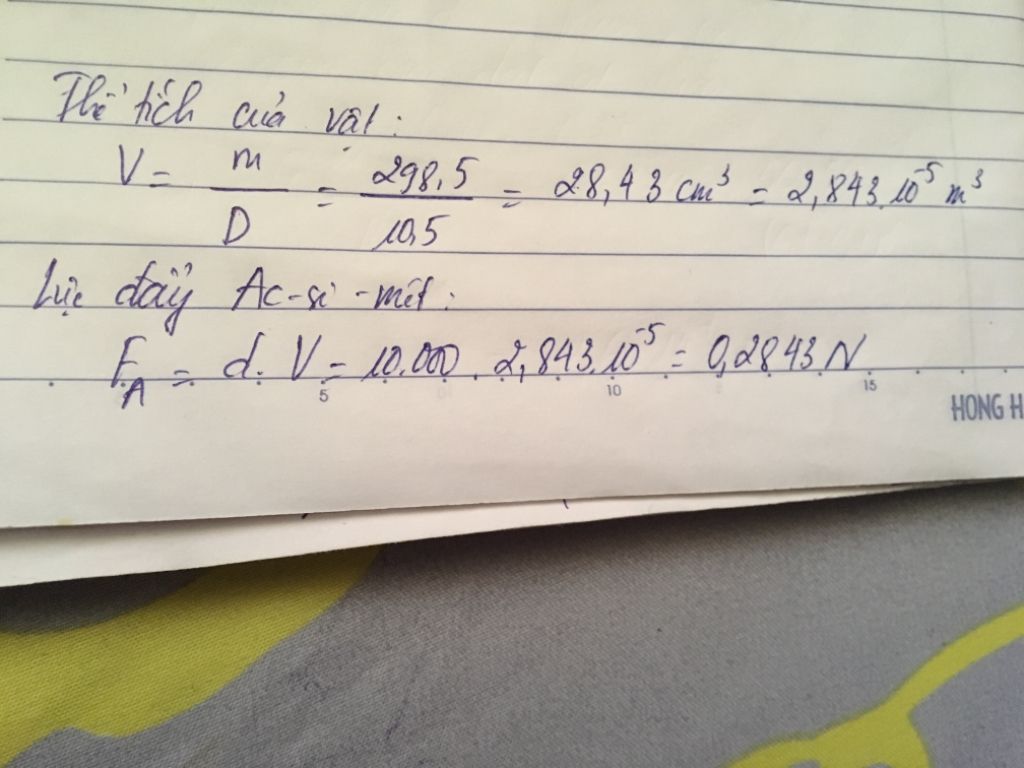 Thể tích của vật:
V = m/D = 298,5/10,5 = 28,43 cm³ = 2,843.10⁻⁵ m³
Lực đẩy Ac-si-mét:
F_A = d. V = 10.000 . 2,843.10⁻⁵ = 0,2843 N
5 10 15
HONG H